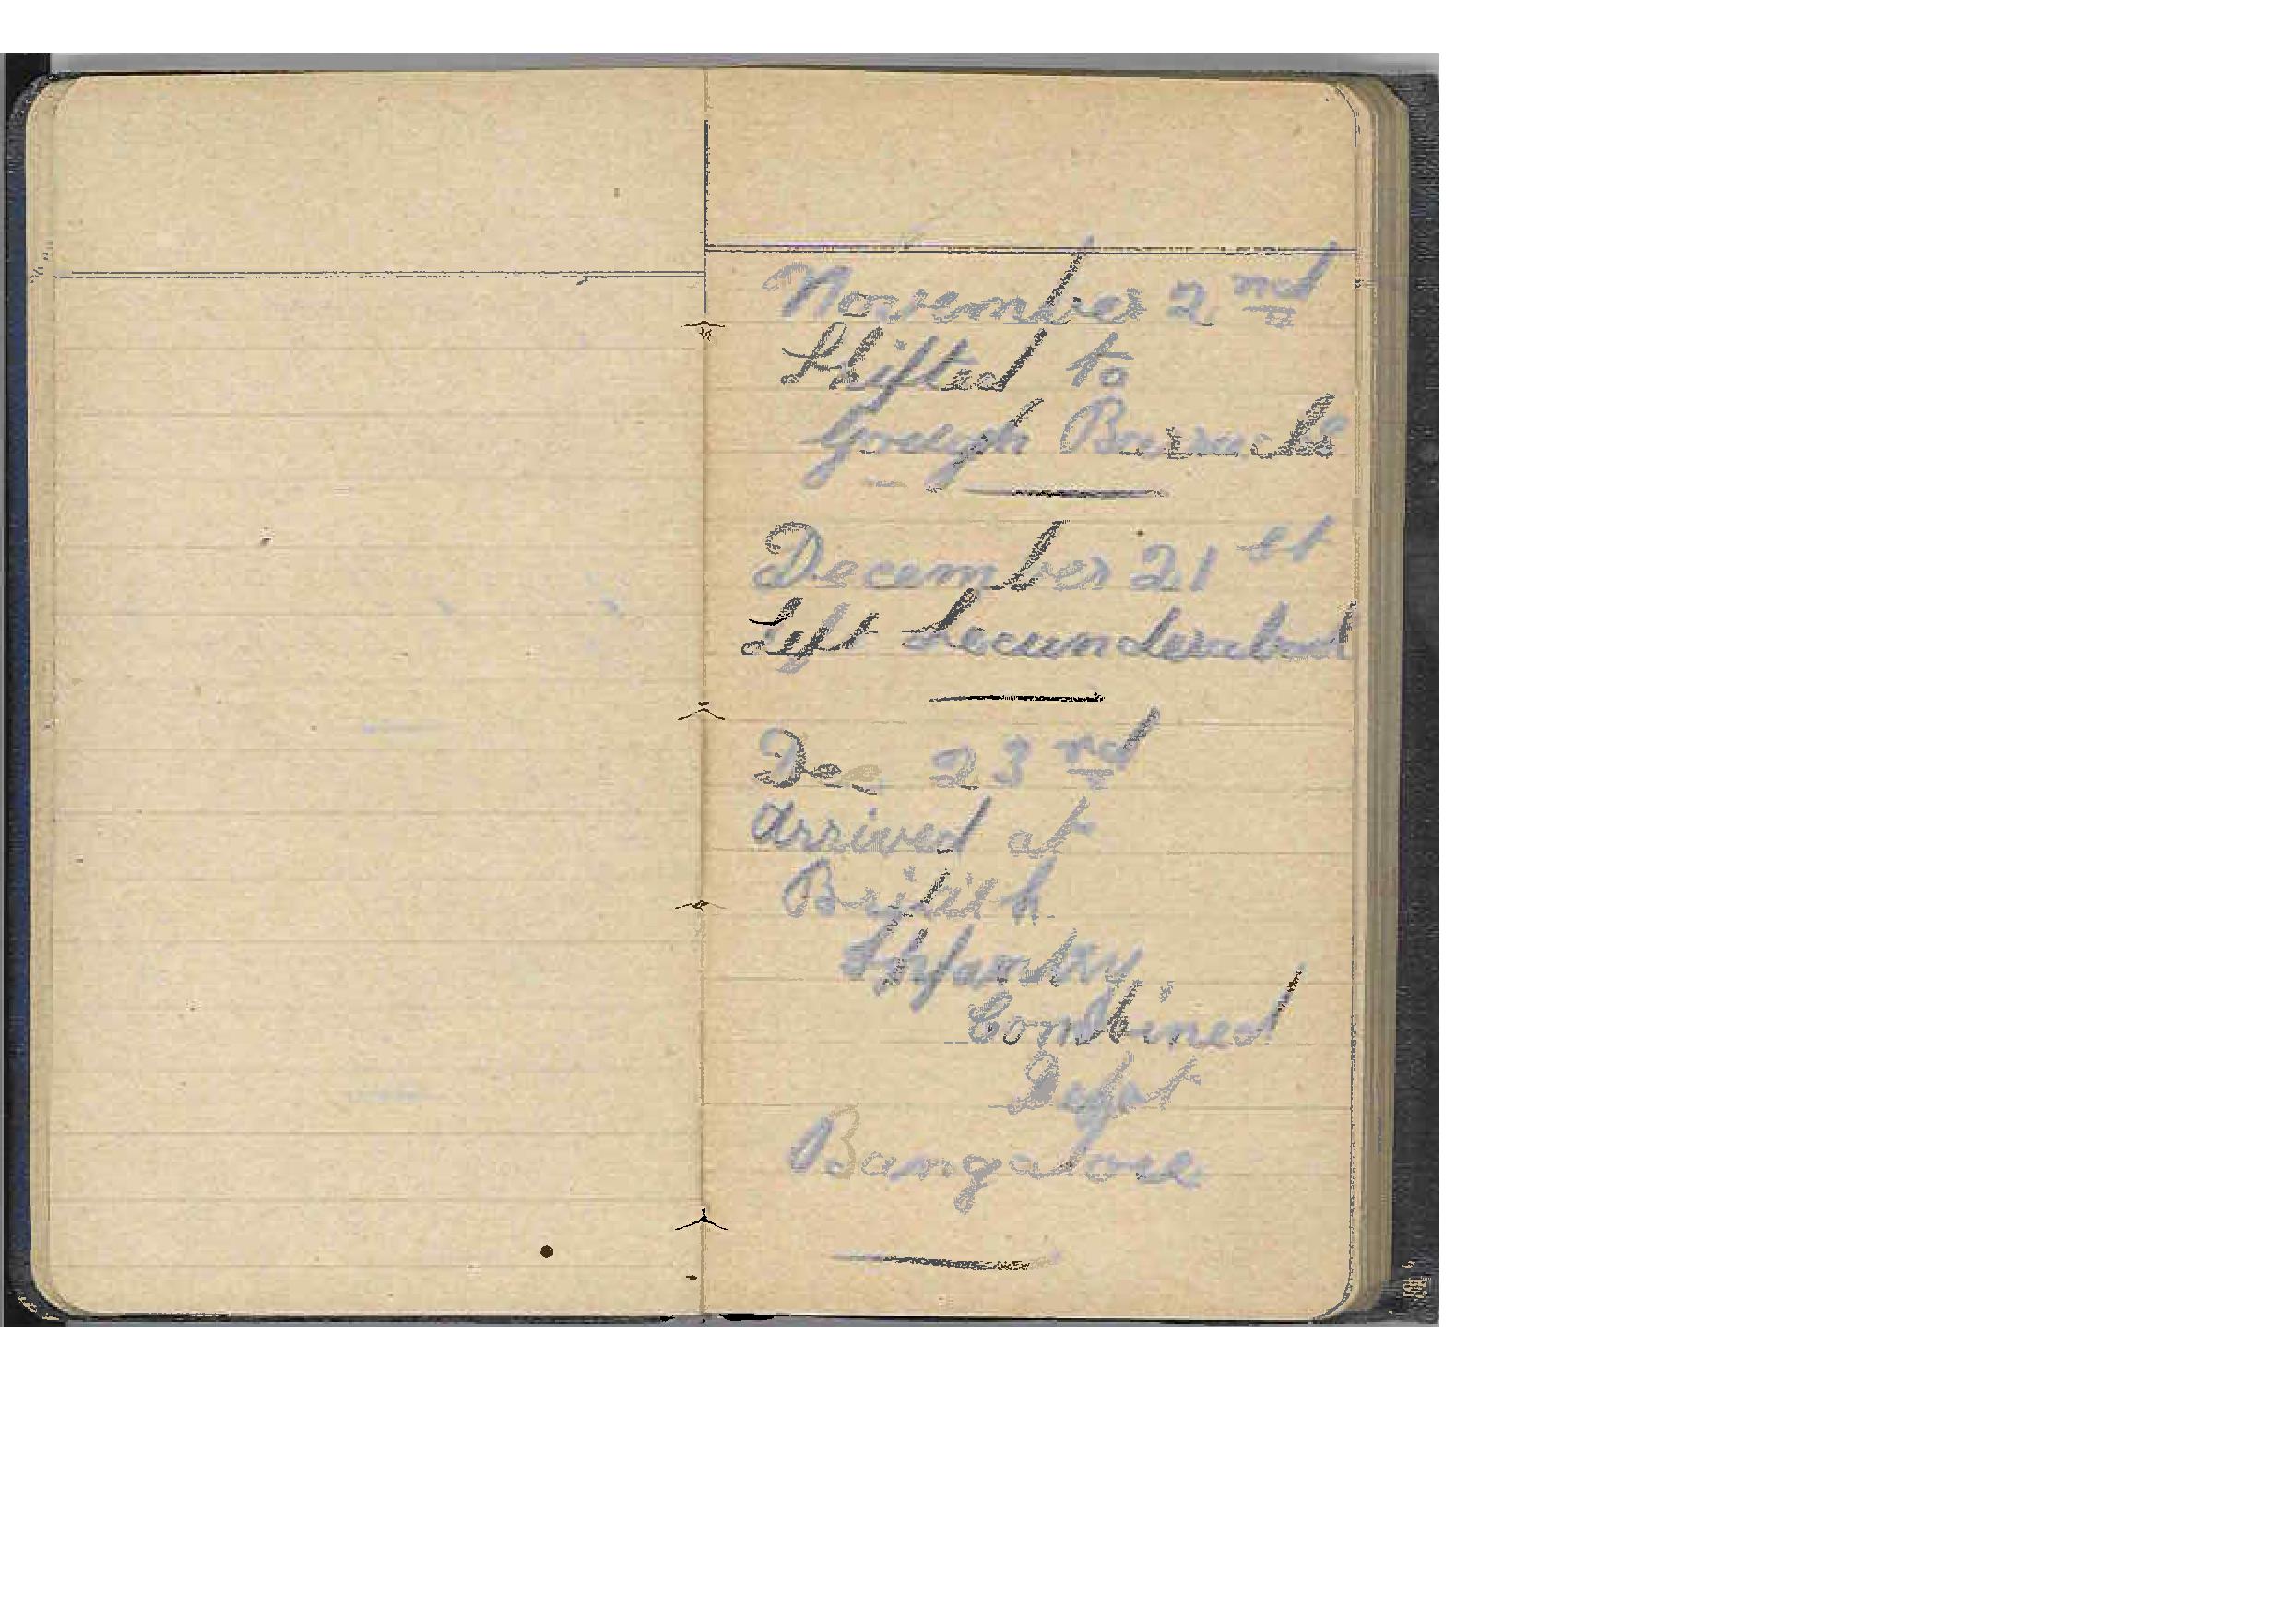 November 2nd
Shifted to
Gough Barracks
December 21st
Left Secunderabad
Dec 23rd
Arrived at
British
Infantry
Combined
Depot
Bangalore